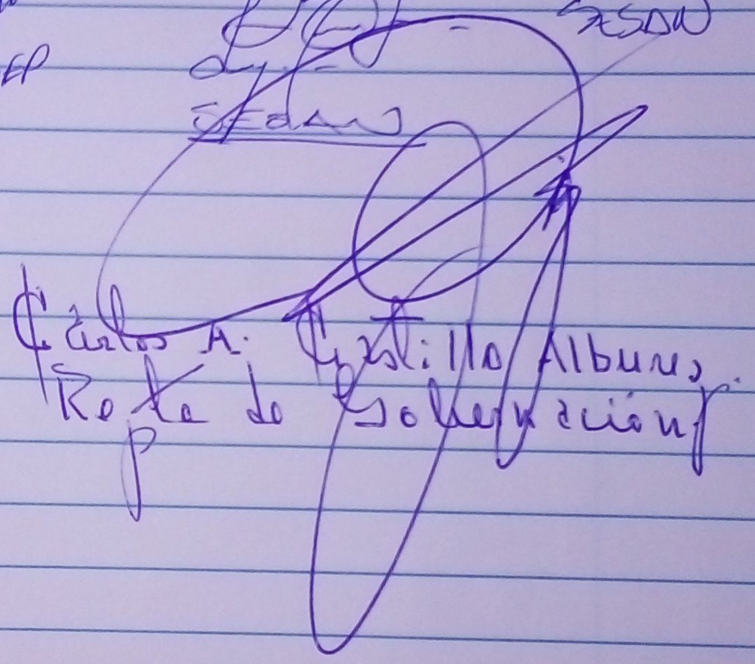 SESDN
EP
SEDAN
Carlos A. Castillo Albures.
Repte de Gobernación